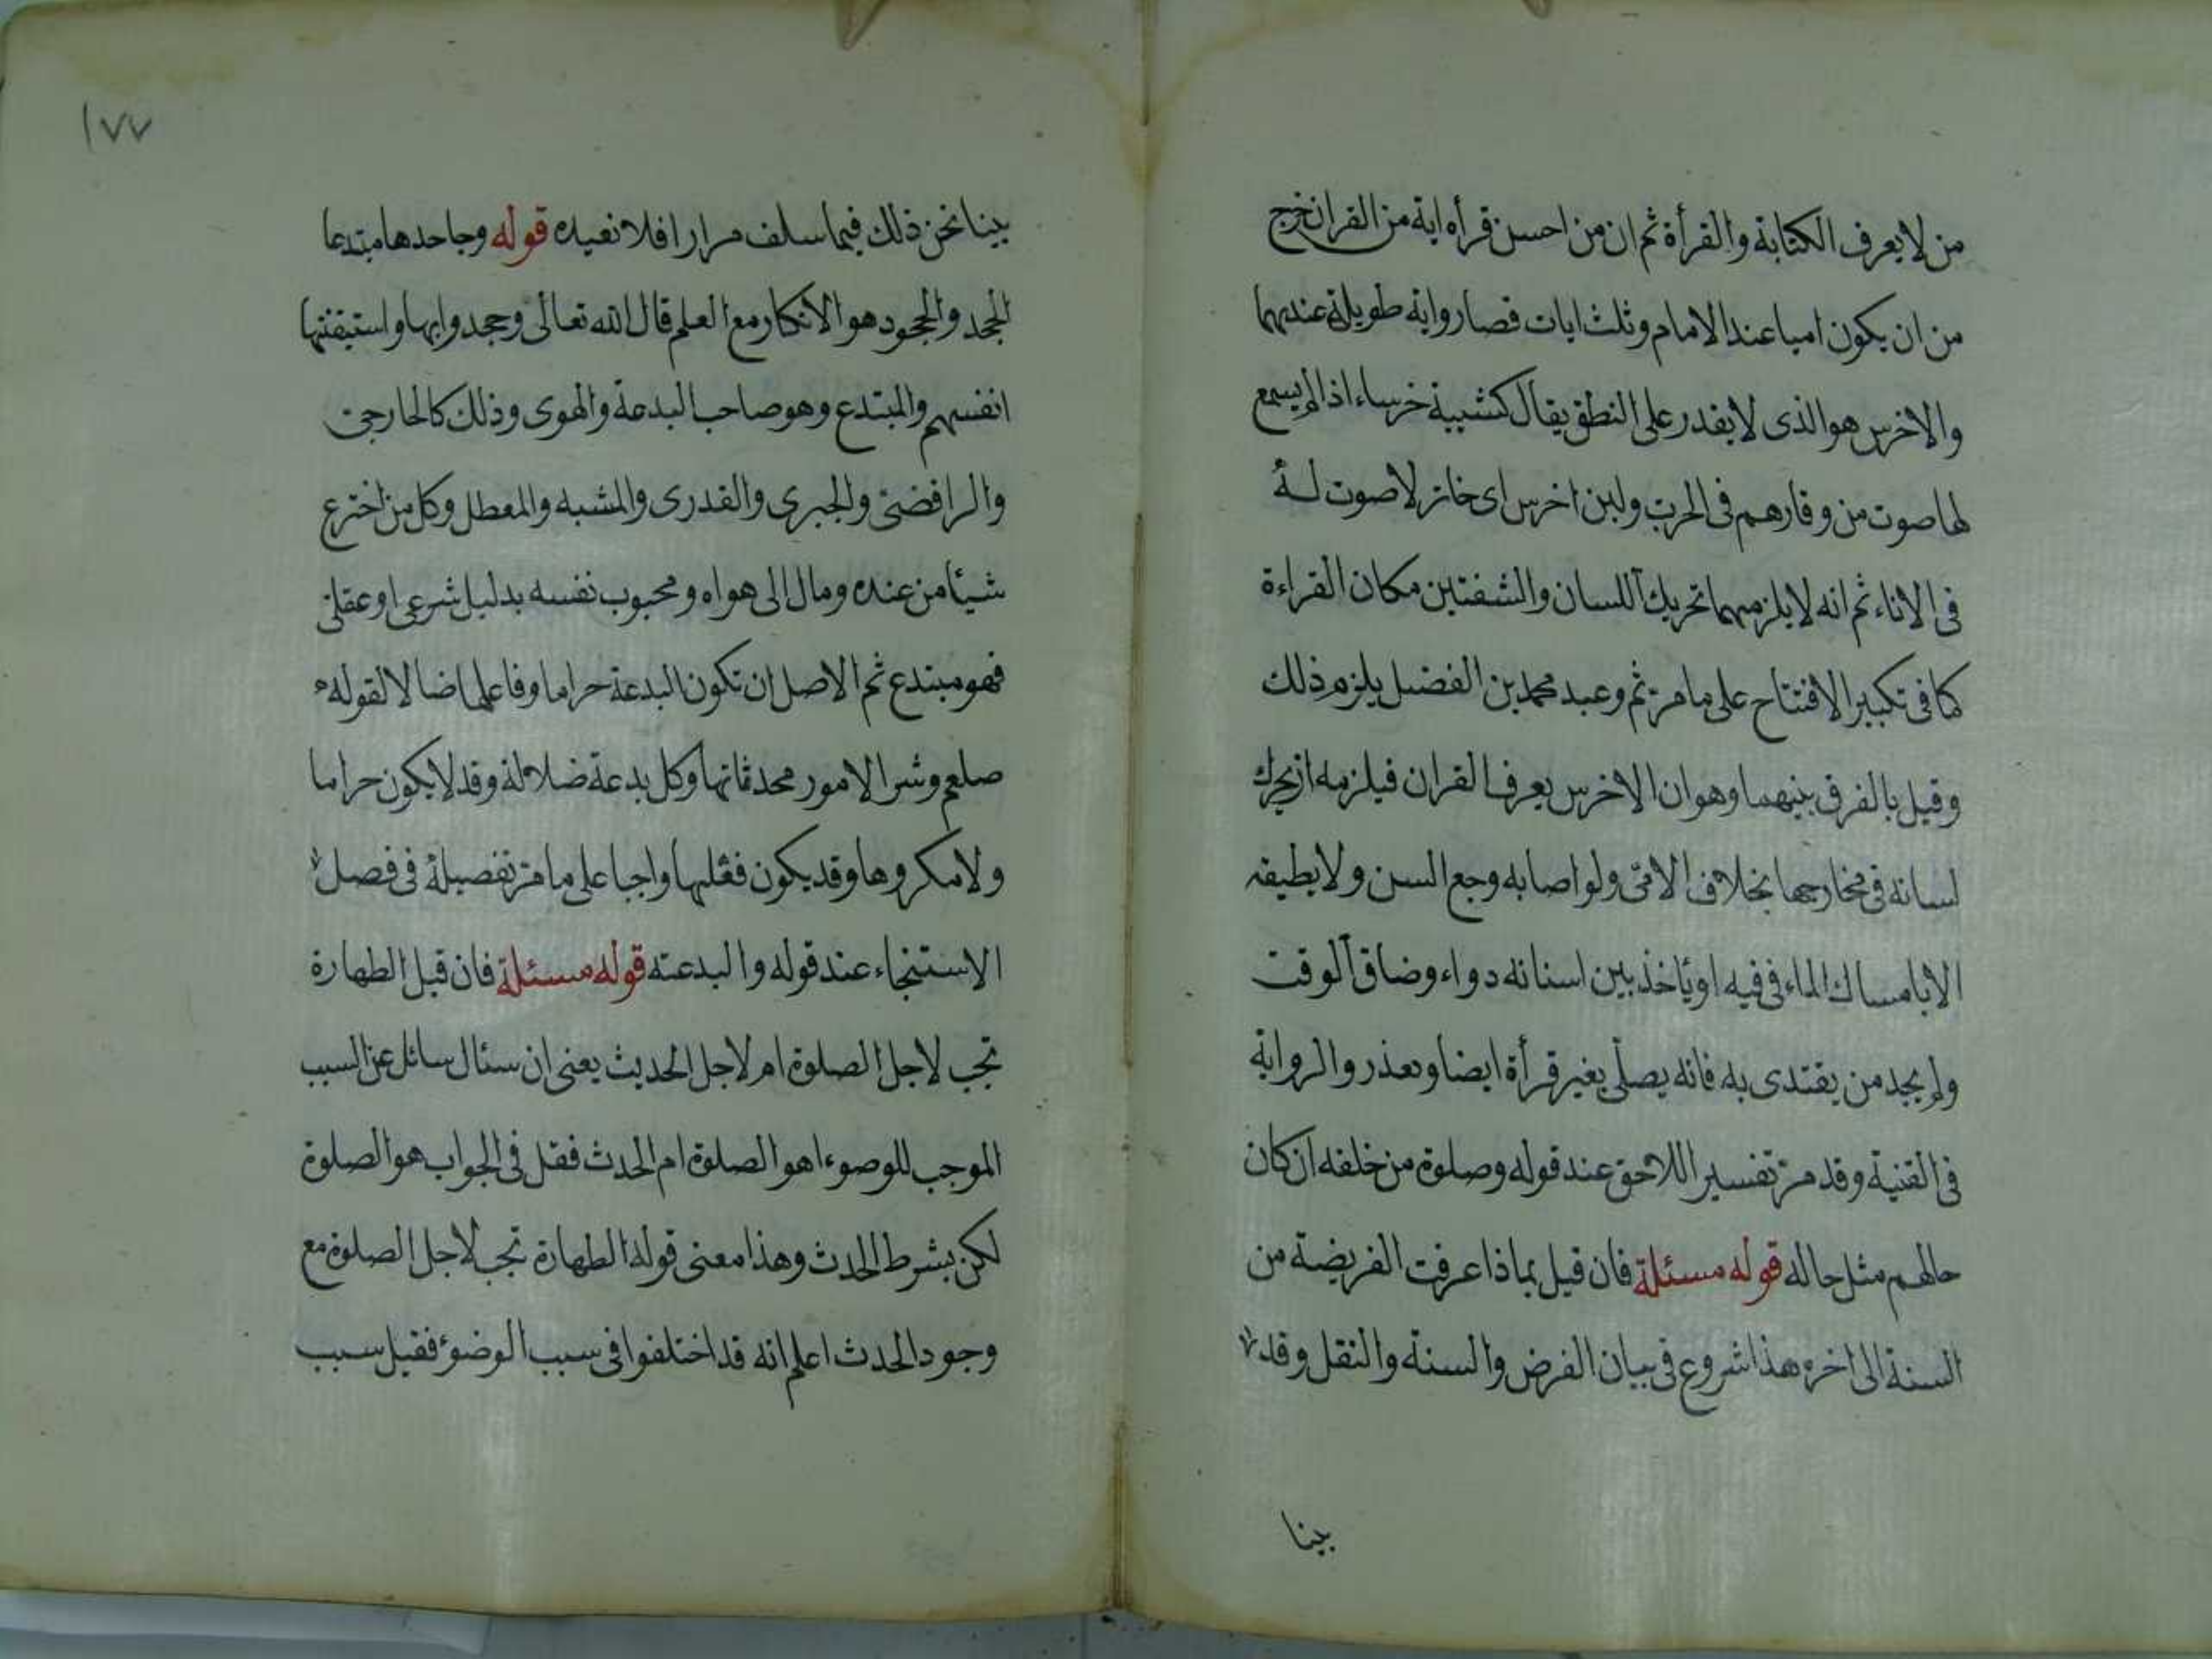 من لا يعرف الكتابة والقرأة ثم ان من احسن قرأه اية من القران خرج
من ان يكون اميا عند الامام وثلث ايات قصار واية طويلة عندهما
والاخرس هو الذى لا يقدر على النطق يقال كتيبة خرساء اذا لم يسمع
لها صوت من وقارهم فى الحرب ولبن اخرس اى خاثر لا صوت له
فى الاناء ثم انه لا يلزمهما تحريك اللسان والشفتين مكان القراءة
كما فى تكبير الافتتاح على ما مر ثم وعبد محمد بن الفضل يلزم ذلك
وقيل بالفرق بينهما وهو ان الاخرس يعرف القران فيلزمه ان يحرك
لسانه فى مخارجها بخلاف الامى ولو اصابه وجع السن ولا يطيقه
الا بامساك الماء فى فيه او يأخذ بين اسنانه دواء وضاق الوقت
ولم يجد من يقتدى به فانه يصلى بغير قرأة ايضا ويعذر والرواية
فى القنية وقد مر تفسير اللاحق عند قوله وصلوة من خلفه ان كان
حالهم مثل حاله قوله مسئلة فان قيل بماذا عرفت الفريضة من
السنة الى اخره هذا شروع فى بيان الفرض والسنة والنفل وقد
بينا
١٧٧
بينا نحن ذلك فيما سلف مرارا فلا نعيده قوله وجاحدها مبتدعا
الجحد والجحود هو الانكار مع العلم قال الله تعالى وجحدوا بها واستيقنتها
انفسهم والمبتدع وهو صاحب البدعة والهوى وذلك كالخارجى
والرافضى والجبرى والقدرى والمشبه والمعطل وكل من اخترع
شيأ من عنده ومال الى هواه ومحبوب نفسه بدليل شرعى او عقلى
فهو مبتدع ثم الاصل ان تكون البدعة حراما وفاعلها ضالا لقوله
صلعم وشر الامور محدثاتها وكل بدعة ضلالة وقد لا يكون حراما
ولا مكروها وقد يكون فعلها واجبا على ما مر تفصيله فى فصل
الاستنجاء عند قوله والبدعته قوله مسئلة فان قيل الطهارة
تجب لاجل الصلوة ام لاجل الحديث يعنى ان سئال سائل عن السبب
الموجب للوصوء اهو الصلوة ام الحدث فقل فى الجواب هو الصلوة
لكن بشرط الحدث وهذا معنى قوله الطهارة تجب لاجل الصلوة مع
وجود الحدث اعلم انه قد اختلفوا فى سبب الوضوء فقيل سبب